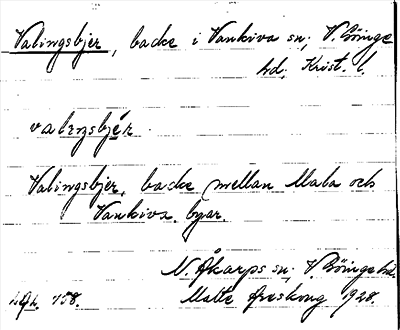 Valingsbjer, backe i Vankiva sn; V. Göinge
hd, Krist. l.
valiŋsbjér.
Valingsbjer, backe mellan Mala och
Vankiva byar.
N. Åkarps sn; V. Göinge hd.
158. Malte 1928.